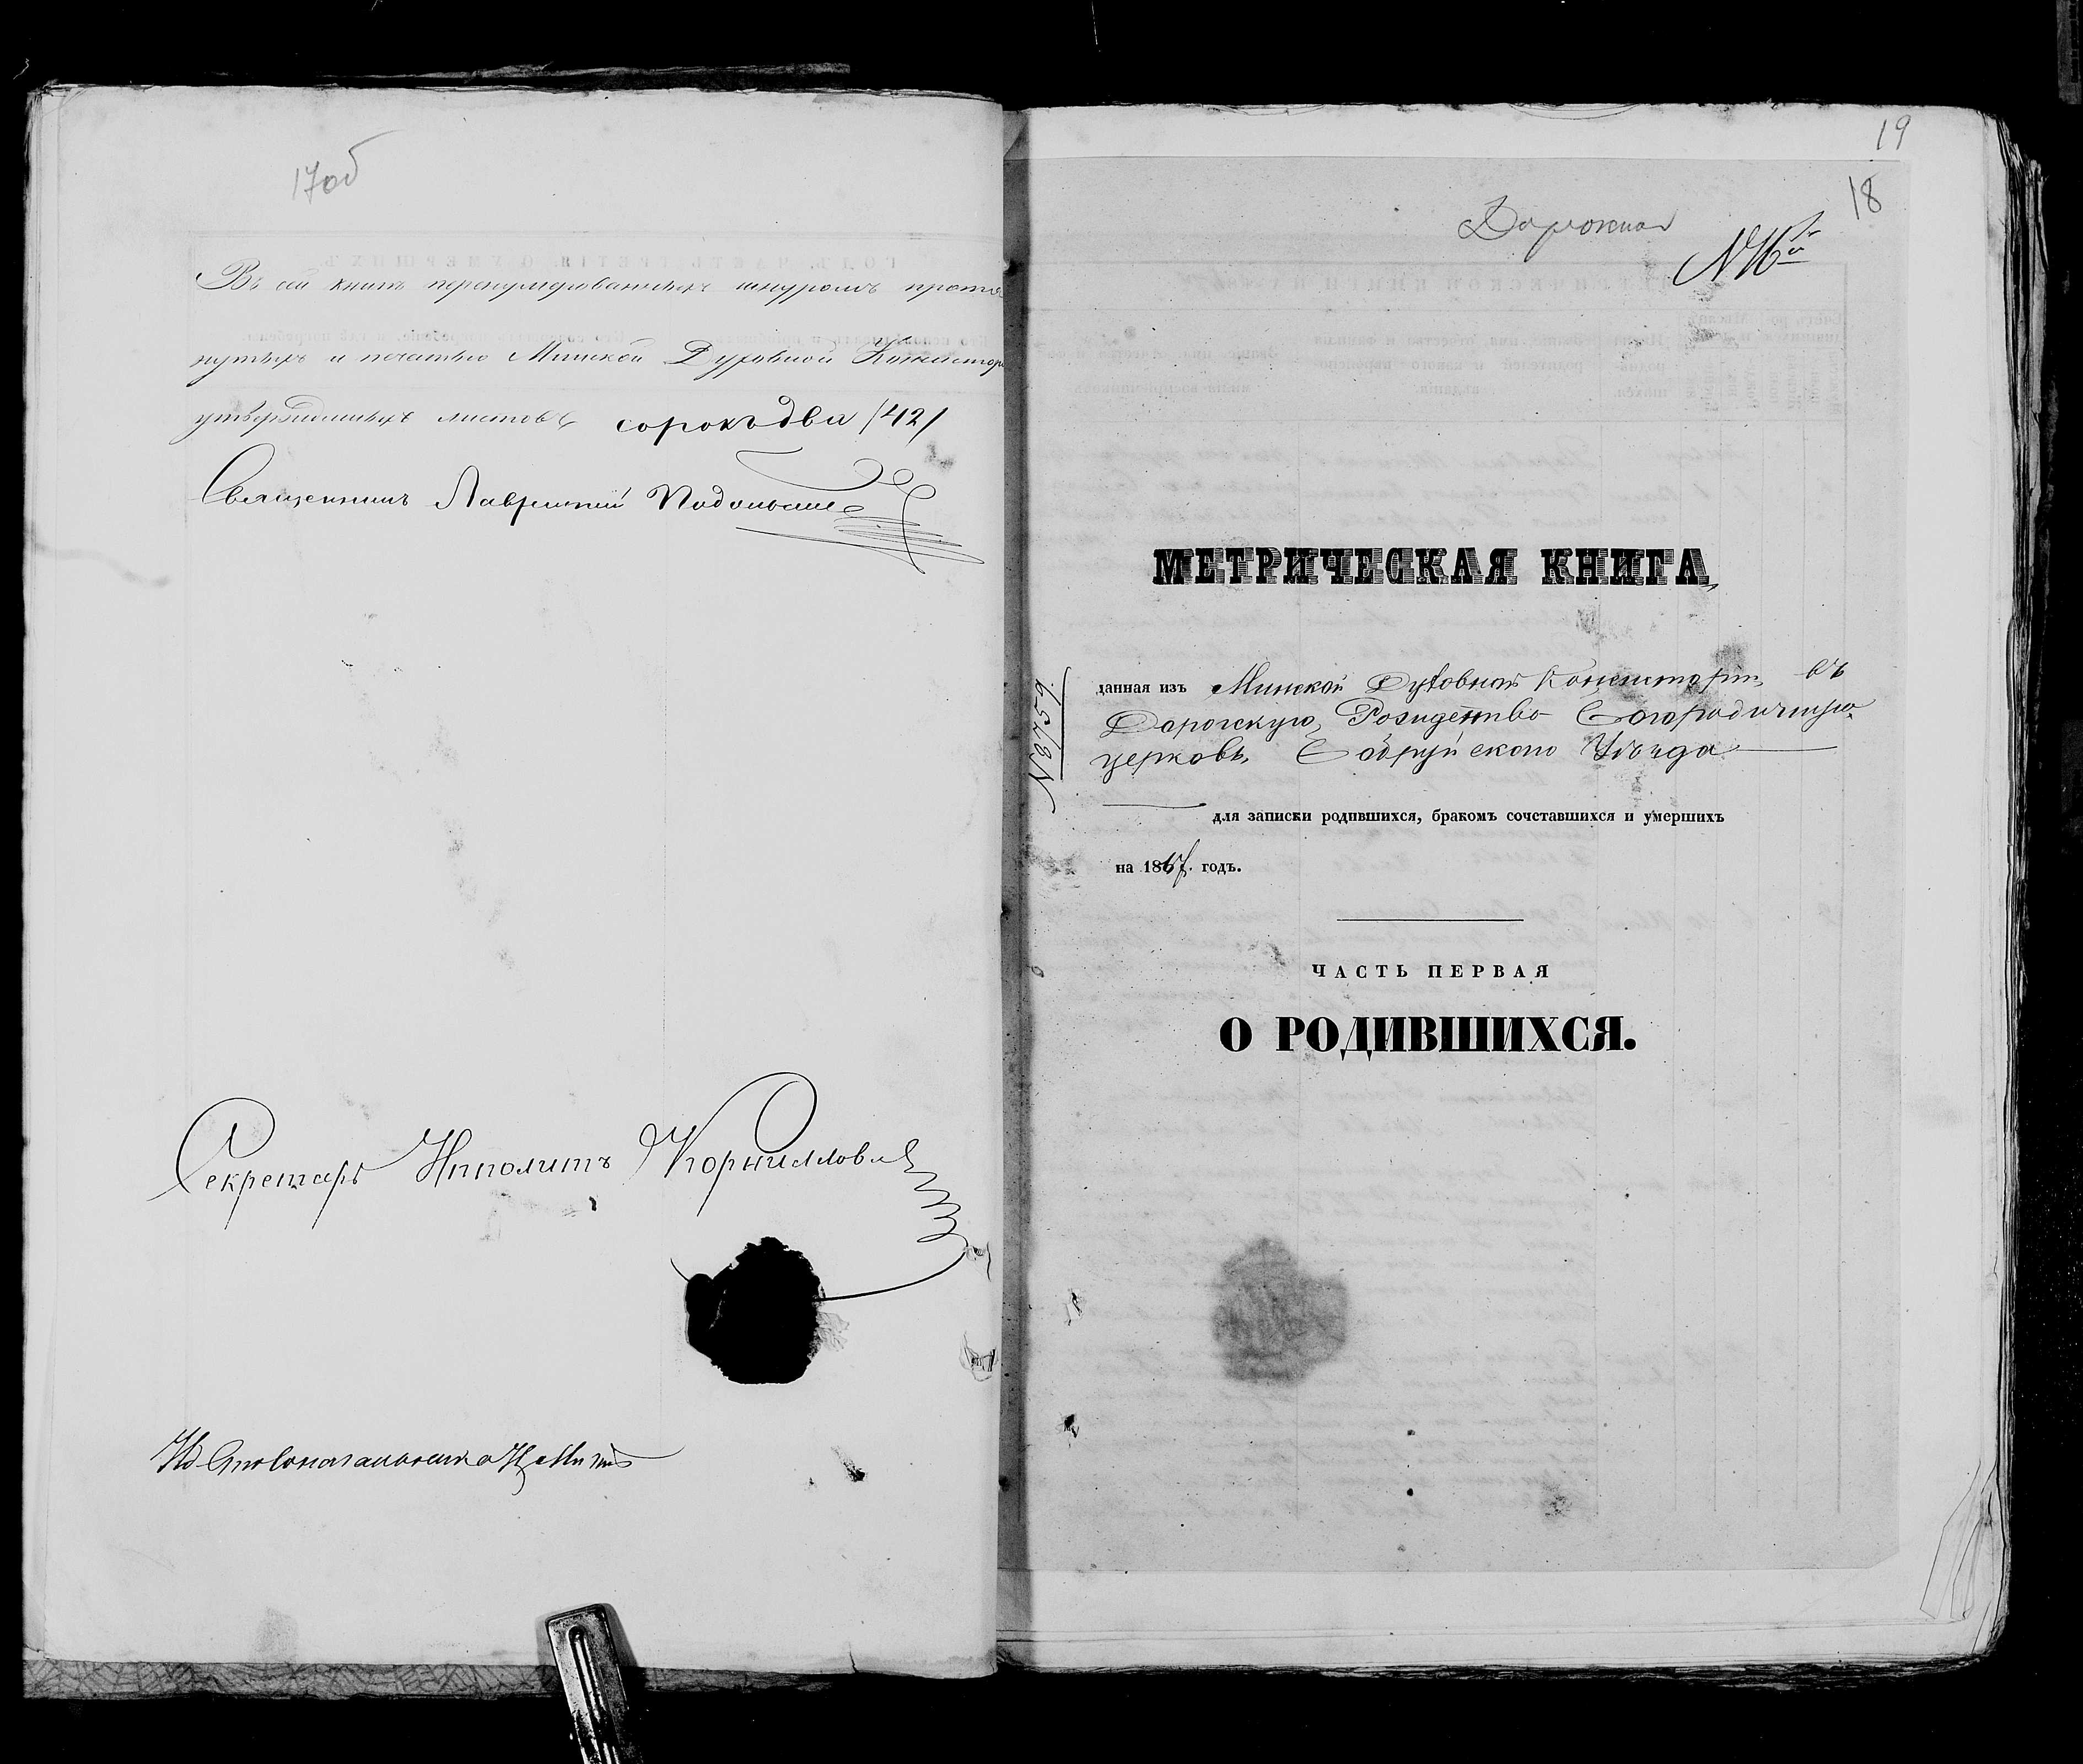 17об
Въ сей книгѣ перенумерованныхъ шнуромъ протя-
нутыхъ и печатью Минской Духовной Консистор
утвержденныхъ листовъ сорокъ два /42/
Священникъ Лаврентій
Секретарь Ипполитъ Корниллов
19
18
N 16й
МЕТРИЧЕСКАЯ КНИГА,
N 8759
данная изъ Минской Духовной Консисторіи, въ
Дарогскую, Рождество-Богородичную
церковь, Бобруйскаго Уѣзда
для записки родившихся, бракомъ сочетавшихся и умершихъ
на 1867. годъ.
ЧАСТЬ ПЕРВАЯ
О РОДИВШИХСЯ.